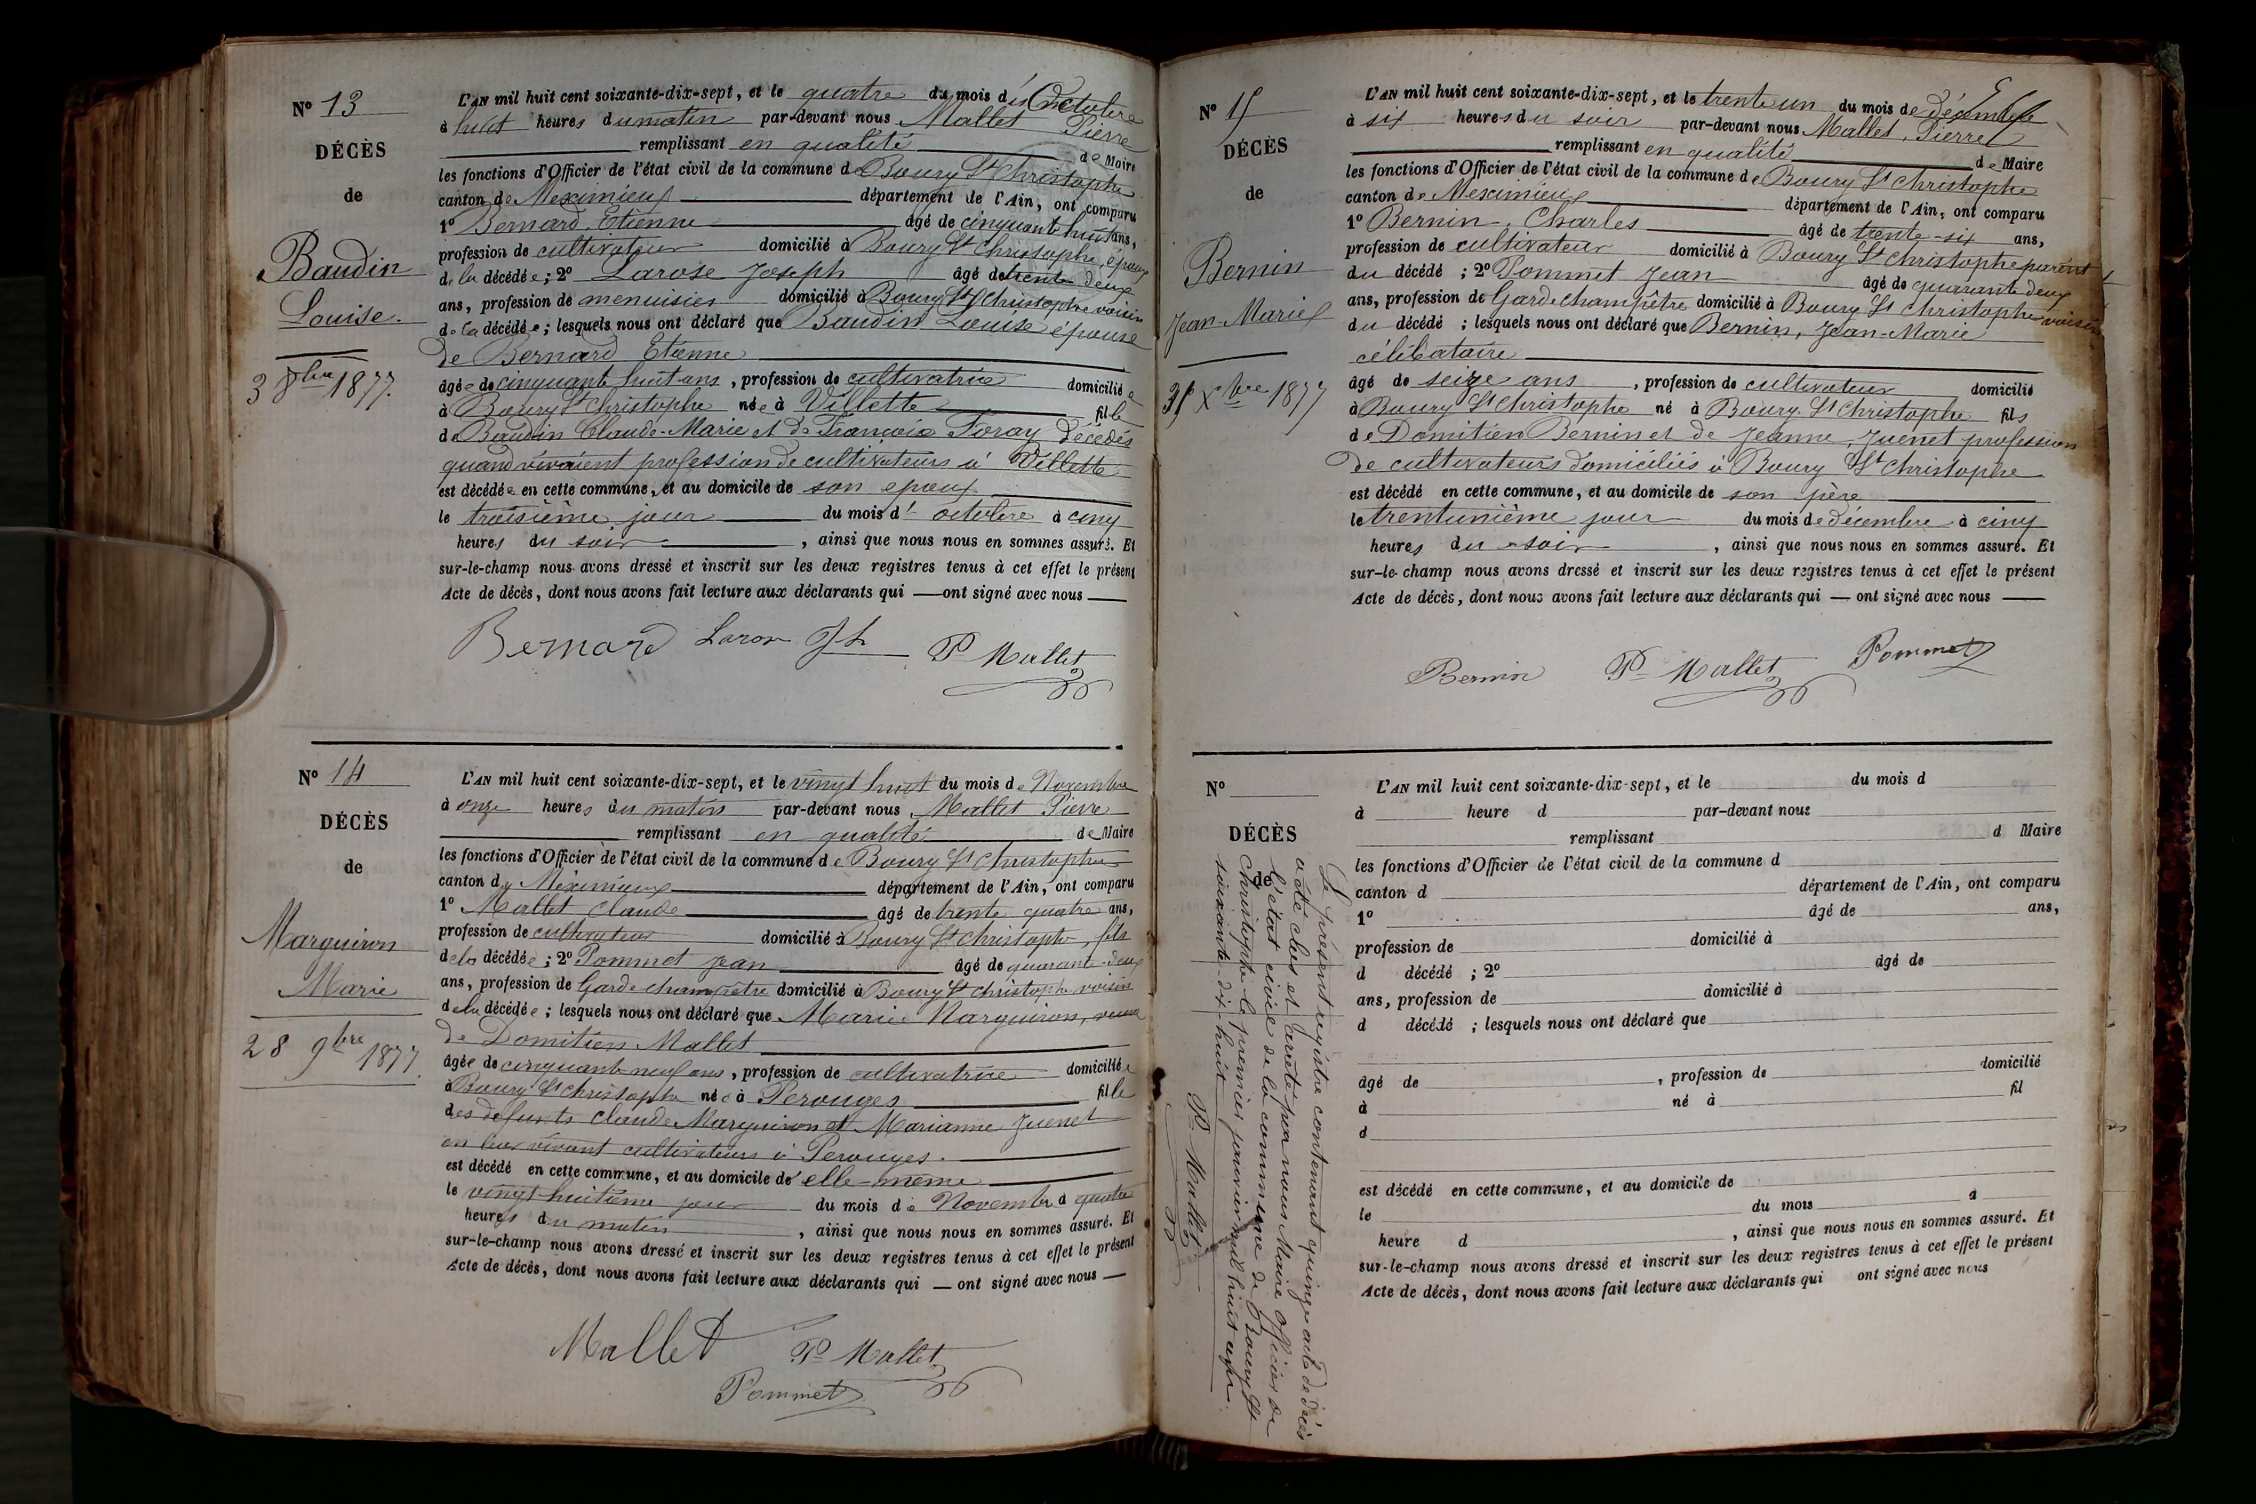 N° 13
DÉCÈS
de
Baudin
Louise.
3 8bre 1877.
L'AN mil huit cent soixante-dix-sept, et le quatre du mois d'Octobre
à huit heures du matin par-devant nous Mallet Pierre
remplissant en qualité de Maire
les fonctions d'Officier de l'état civil de la commune de Bourg St Christophe
canton de Meximieux département de l'Ain, ont comparu
1° Bernard Etienne âgé de cinquant huit ans,
profession de cultivateur domicilié à Bourg St Christophe, époux
de la décédée ; 2° Larose Joseph âgé de trente deux
ans, profession de menuisier domicilié à Bourg St Christophe voisin
de la décédée ; lesquels nous ont déclaré que Baudin Louise épouse
de Bernard Etienne
âgée de cinquante huit ans, profession de cultivatrice domiciliée
à Bourg St Christophe née à Villette fille
de Baudin Claude-Marie et de Françoise Foray décédés
quand vivaient profession de cultivateurs à Villette
est décédée en cette commune, et au domicile de son epoux
le troisième jour du mois d' octobre à cinq
heures du soir, ainsi que nous nous en sommes assuré. Et
sur-le-champ nous avons dressé et inscrit sur les deux registres tenus à cet effet le présent
Acte de décès, dont nous avons fait lecture aux déclarants qui ont signé avec nous
Bernard Laros Jh P Mallet
N° 14
DÉCÈS
de
Marguiron
Marie
28 9bre 1877.
L'AN mil huit cent soixante-dix-sept, et le vingt huit du mois de Novembre
à onze heures du matin par-devant nous Mallet Pierre
remplissant en qualité de Maire
les fonctions d'Officier de l'état civil de la commune de Bourg St Christophe
canton de Méximieux département de l'Ain, ont comparu
1° Mallet Claude âgé de trente quatre ans,
profession de cultivateur domicilié à Bourg St Christophe, fils
de la décédée ; 2° Pommet Jean âgé de quarante-deux
ans, profession de Garde champêtre domicilié à Bourg St Christophe voisin
de la décédée ; lesquels nous ont déclaré que Marie Marguiron, veuve
de Domitien Mallet
âgée de cinquante neuf ans, profession de cultivatrice domiciliée
à Bourg St Christophe née à Perouges fille
des defunts Claude Marguiron et Marianne Juenet
en leur vivant cultivateurs à Perouges.
est décédé en cette commune, et au domicile de elle-même
le vingt-huitième jour du mois de Novembre à quatre
heures du matin, ainsi que nous nous en sommes assuré. Et
sur-le-champ nous avons dressé et inscrit sur les deux registres tenus à cet effet le présent
Acte de décès, dont nous avons fait lecture aux déclarants qui ont signé avec nous
Mallet P Mallet
Pommet
N° 15
DÉCÈS
de
Bernin
Jean-Marie
31 Xbre 1877
L'AN mil huit cent soixante-dix-sept, et le trente un du mois de décembre
à six heures du soir par-devant nous Mallet, Pierre
remplissant en qualité de Maire
les fonctions d'Officier de l'état civil de la commune de Bourg St Christophe
canton de Meximieux département de l'Ain, ont comparu
1° Bernin Charles âgé de trente-six ans,
profession de cultivateur domicilié à Bourg St Christophe parent
du décédé ; 2° Pommet Jean âgé de quarante deux
ans, profession de Garde champêtre domicilié à Bourg St Christophe voisin
du décédé ; lesquels nous ont déclaré que Bernin, Jean-Marie
célibataire
âgé de seize ans, profession de cultivateur domicilié
à Bourg St Christophe né à Bourg St Christophe fils
de Domitien Bernin et de Jeanne, Juenet profession
de cultivateurs domiciliés à Bourg St Christophe
est décédé en cette commune, et au domicile de son père
le trentunième jour du mois de décembre à cinq
heures du soir, ainsi que nous nous en sommes assuré. Et
sur-le-champ nous avons dressé et inscrit sur les deux registres tenus à cet effet le présent
Acte de décès, dont nous avons fait lecture aux déclarants qui ont signé avec nous
Bernin P Mallet Pommet
N°
DÉCÈS
de
Le présent registre contenant quinze acte de décès
a été clos et arrêté par nous Maire officier de
l'état civil de la commune de Bourg St
Christophe le premier janvier mil huit cent
soixante-dix-huit
P Mallet
L'AN mil huit cent soixante-dix-sept, et le du mois d
à heure d par-devant nous
remplissant d Maire
les fonctions d'Officier de l'état civil de la commune d
canton d département de l'Ain, ont comparu
1° âgé de ans,
profession de domicilié à
d décédé ; 2° âgé de
ans, profession de domicilié à
d décédé ; lesquels nous ont déclaré que
âgé de , profession de domicilié
à né à fil
d
est décédé en cette commune, et au domicile de
le du mois à
heure d , ainsi que nous nous en sommes assuré. Et
sur-le-champ nous avons dressé et inscrit sur les deux registres tenus à cet effet le présent
Acte de décès, dont nous avons fait lecture aux déclarants qui ont signé avec nous